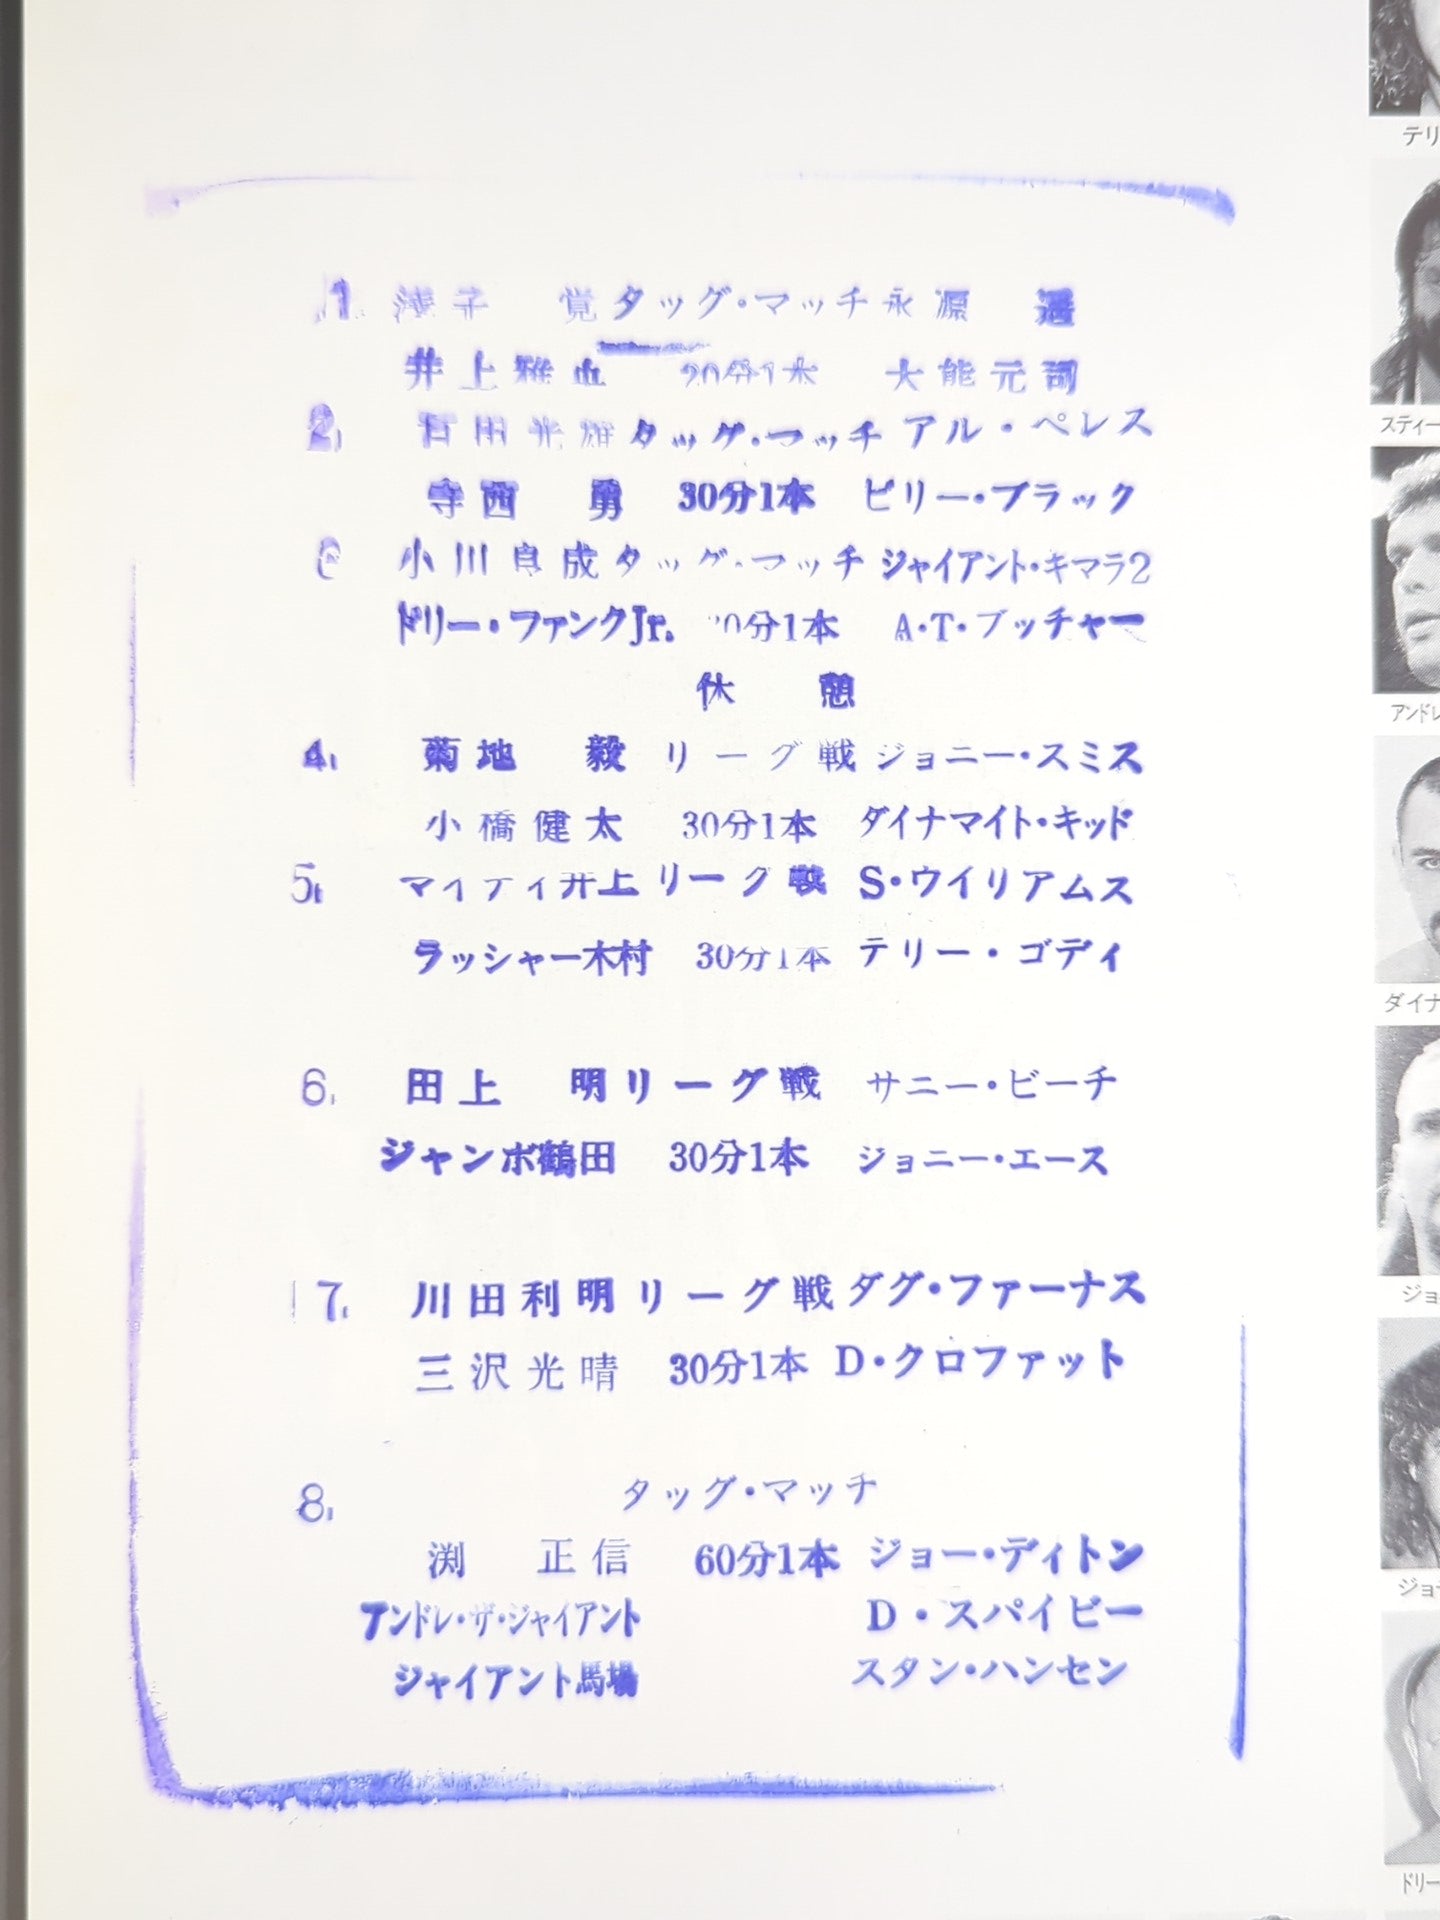 1. 浅子 覚 タッグ・マッチ 永源 遥
井上雅央 20分1本 大熊元司
2. 百田光雄 タッグ・マッチ アル・ペレス
寺西 勇 30分1本 ビリー・ブラック
小川良成 タッグ・マッチ ジャイアント・キマラ2
ドリー・ファンクJr. 分1本 A・T・ブッチャー
休 憩
4. 菊地 毅 リーグ戦 ジョニー・スミス
小橋健太 30分1本 ダイナマイト・キッド
5. マイティ井上 リーグ戦 S・ウイリアムス
ラッシャー木村 30分1本 テリー・ゴディ
6. 田上 明 リーグ戦 サニー・ビーチ
ジャンボ鶴田 30分1本 ジョニー・エース
7. 川田利明 リーグ戦 ダグ・ファーナス
三沢光晴 30分1本 D・クロファット
8. タッグ・マッチ
渕 正信 60分1本 ジョー・ディトン
アンドレ・ザ・ジャイアント D・スパイビー
ジャイアント馬場 スタン・ハンセン
テリ
スティー
アンドレ
ダイナ
ジョ
ジョ
ドリー